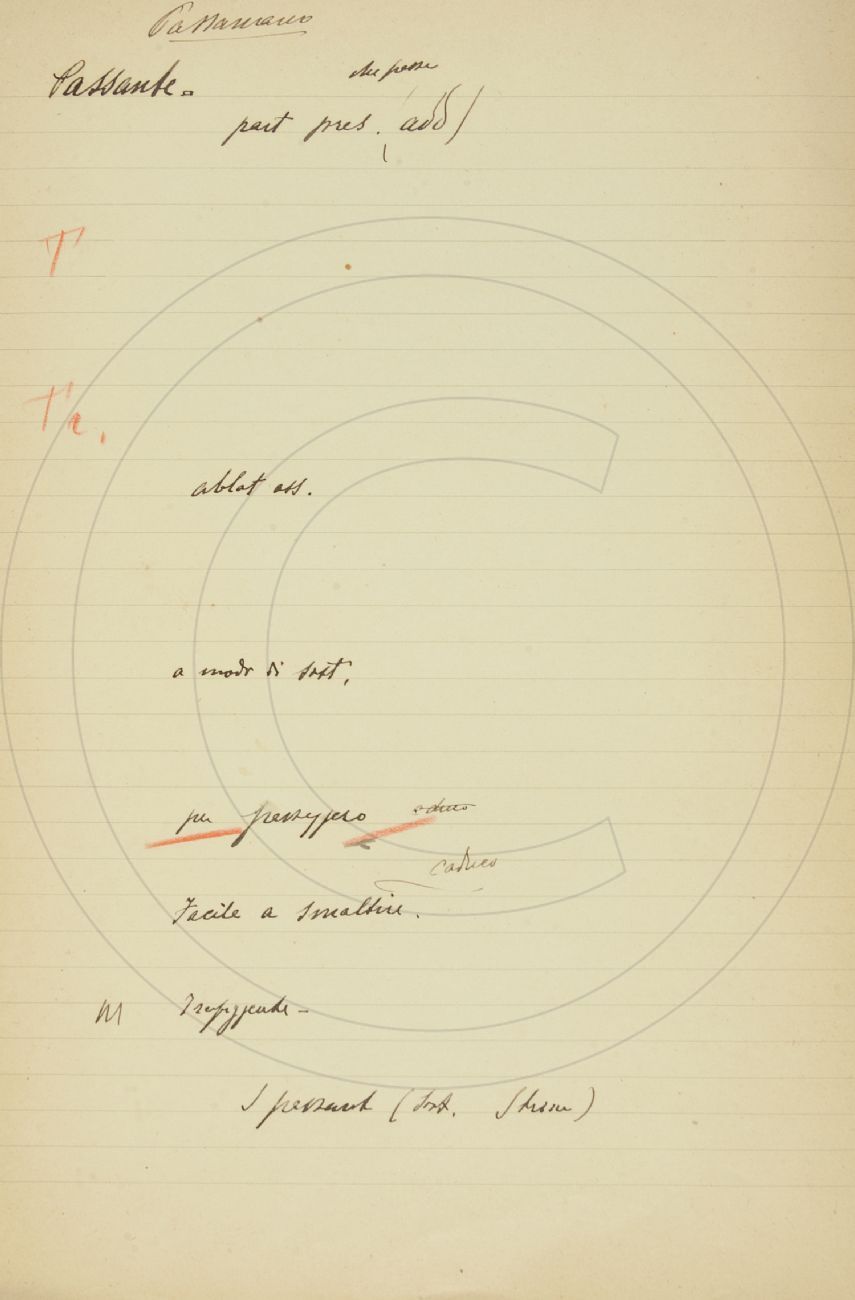 Passamano
Passante.
che passa
part pres. add)
T
Tr.
ablat ass.
a modo di sost,
per passeggero
caduco
Facile a smaltire.
M Trafiggente -
passante (sost.